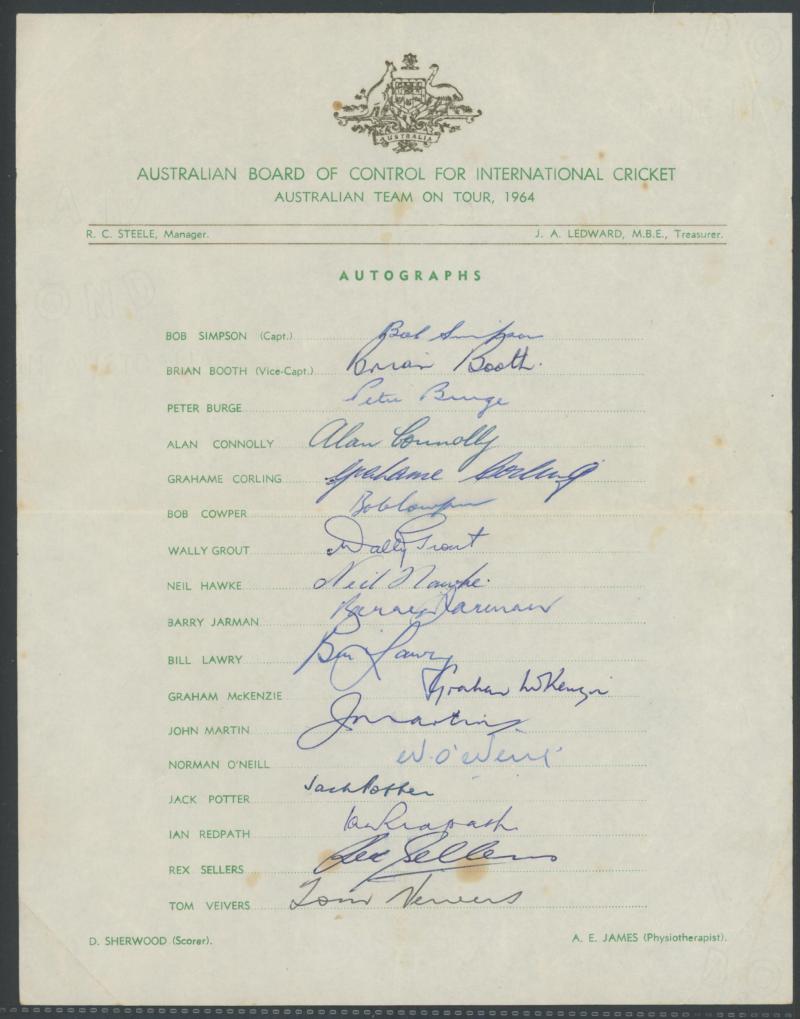 AUSTRALIA
AUSTRALIAN BOARD OF CONTROL FOR INTERNATIONAL CRICKET
AUSTRALIAN TEAM ON TOUR, 1964
R. C. STEELE, Manager. J. A. LEDWARD, M.B.E., Treasurer.
AUTOGRAPHS
BOB SIMPSON (Capt.) Bob Simpson
BRIAN BOOTH (Vice-Capt.) Brian Booth.
PETER BURGE Peter Burge
ALAN CONNOLLY Alan Connolly
GRAHAME CORLING Grahame Corling
BOB COWPER Bob Cowper
WALLY GROUT Wally Grout
NEIL HAWKE Neil Hawke.
BARRY JARMAN Barry Jarman
BILL LAWRY Bill Lawry
GRAHAM McKENZIE Graham McKenzie
JOHN MARTIN J Martin
NORMAN O'NEILL N. O'Neill
JACK POTTER Jack Potter
IAN REDPATH Ian Redpath
REX SELLERS Rex Sellers
TOM VEIVERS Tom Veivers
D. SHERWOOD (Scorer). A. E. JAMES (Physiotherapist).